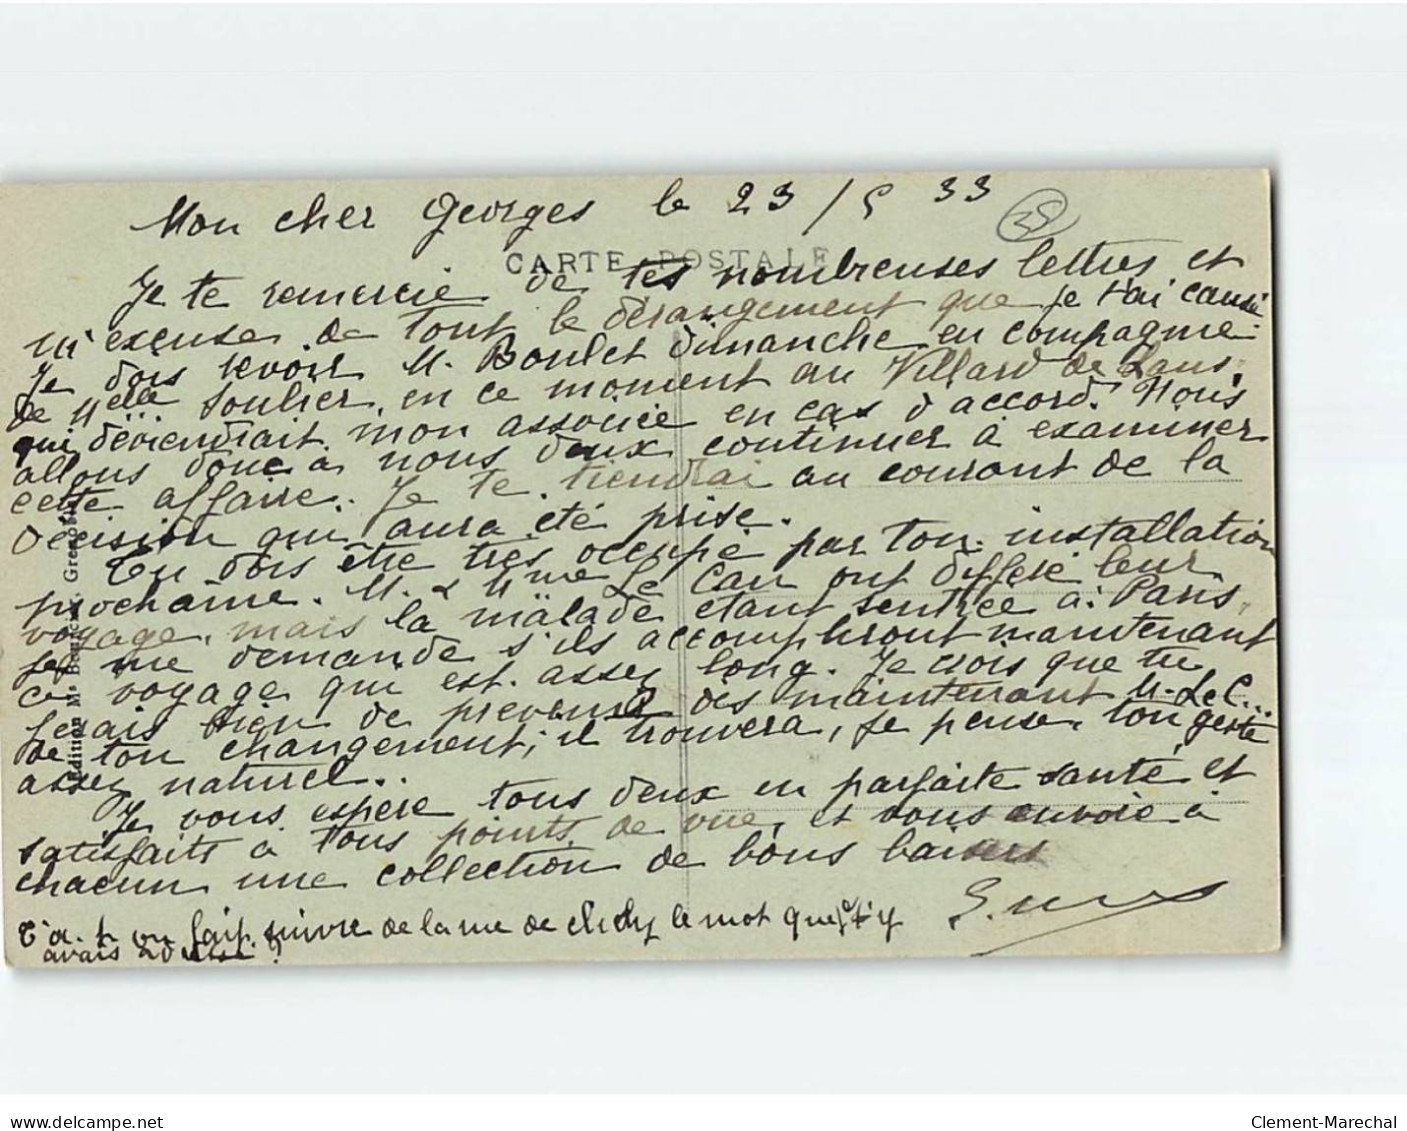 Mon cher Georges le 23/5 33
CARTE POSTALE
Je te remercie de tes nombreuses lettres et
m'excuse de tout le dérangement que je t'ai causé
Je dois revoir M. Boulet dimanche en compagnie
de Melle Soulier, en ce moment au Villard de Lans,
qui deviendrait mon associée en cas d'accord. Nous
allons donc à nous deux continuer à examiner
cette affaire. Je te tiendrai au courant de la
décision qui aura été prise.
Tu dois être très occupé par ton installation
prochaine. M. & Mme Le Can ont différé leur
voyage, mais la malade étant rentrée à Paris,
je me demande s'ils accompliront maintenant
ce voyage qui est assez long. Je crois que tu
ferais bien de prévenir dès maintenant M. Le C...
de ton changement; il trouvera, je pense, ton geste
assez naturel..
Je vous espère tous deux en parfaite santé et
satisfaits à tous points de vue, et vous envoie à
chacun une collection de bons baisers
T'a-t-on fait suivre de la rue de Clichy le mot que j't'y
avais adressé ?
Edition Mle Grenoble
38
Clement-Marechal
www.delcampe.net